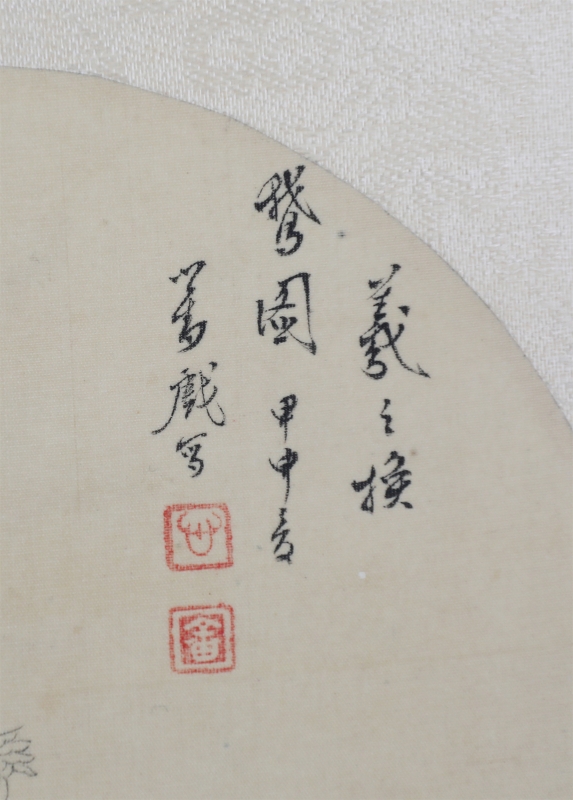 羲之换
鵝图甲申夏
戲写